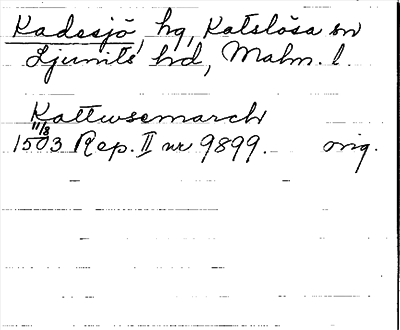 Kadesjö, hg, Katslösa sn
Ljunits hd, Malm. l.
Kattusemarch
11/8
1503 Rep. II nr 9899. orig.